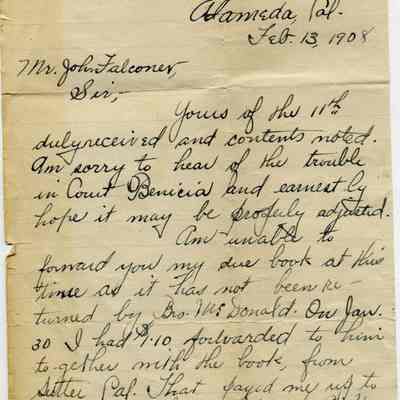 Alameda, Cal.
Feb. 13, 1908
Mr. John Falconer,
Sir,-
Yours of the 11th
duly received and contents noted.
Am sorry to hear of the trouble
in Court Benicia and earnestly
hope it may be properly adjusted.
Am unable to
forward you my due book at this
time as it has not been re-
turned by Bro. McDonald. On Jan.
30 I had $7.10 forwarded to him
to-gether with the book, from
Sutter Cal. That payed me up to